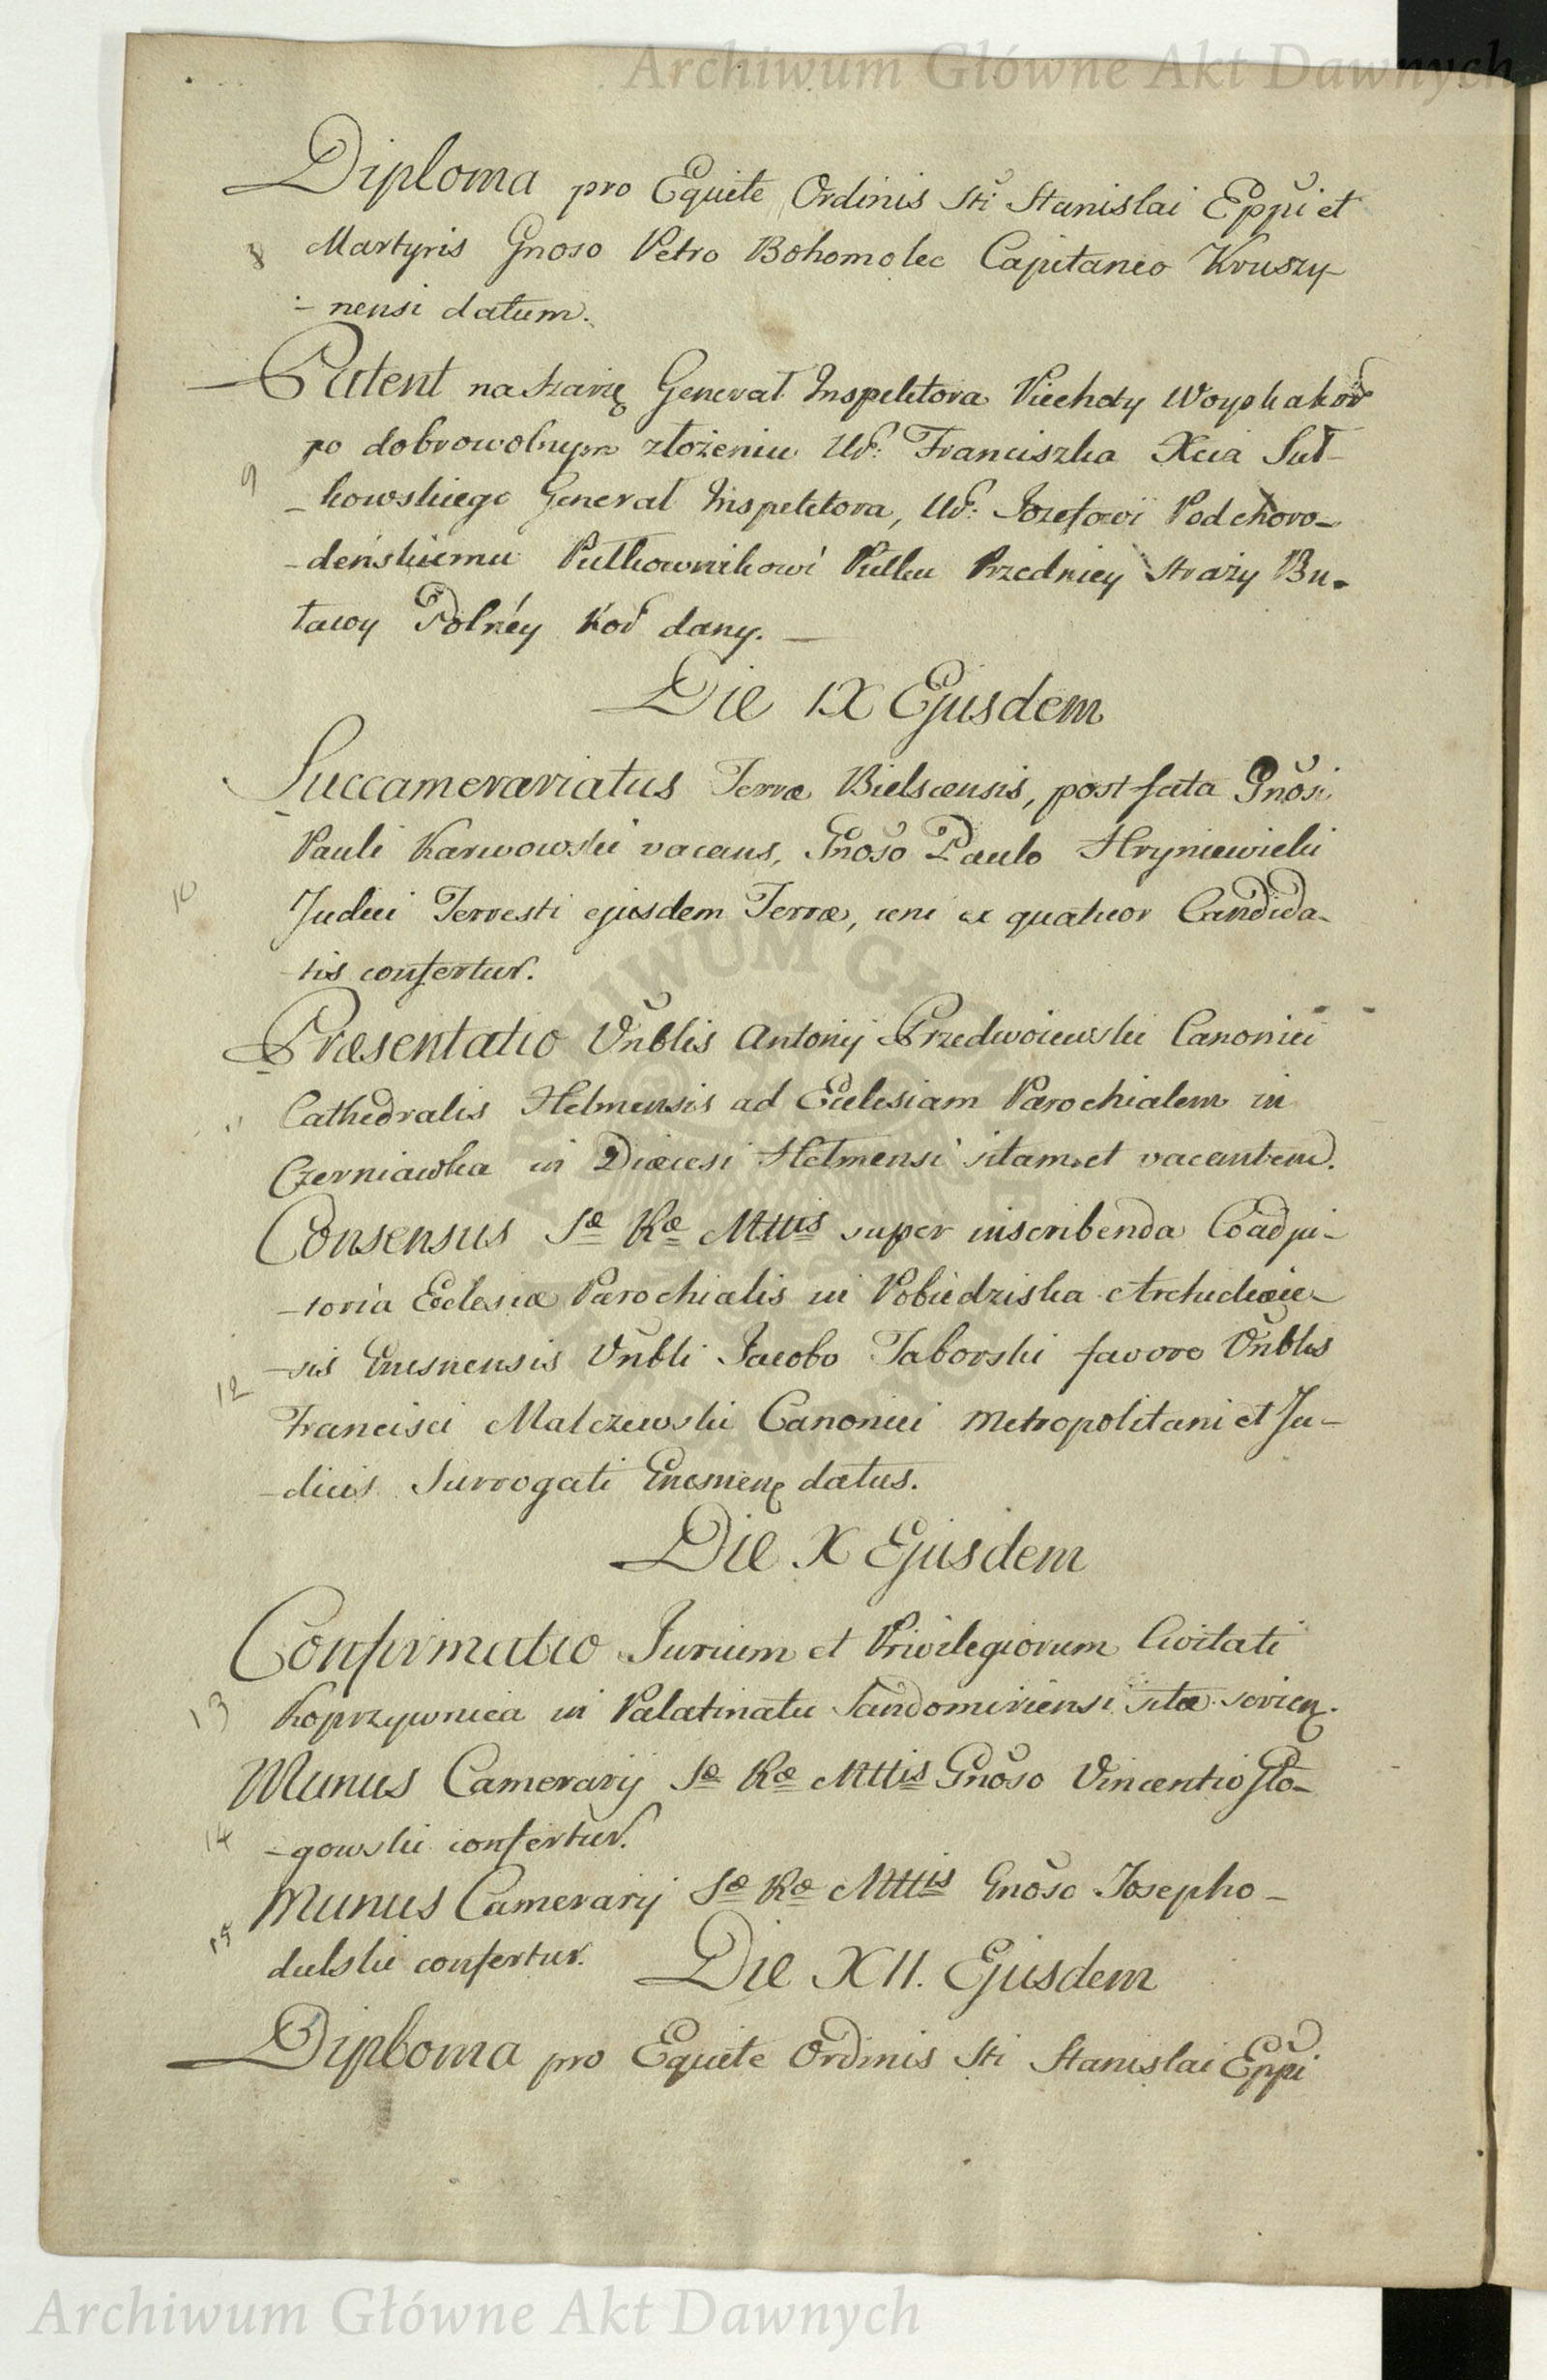 Archiwum Główne Akt Dawnych
Diploma pro Equite Ordinis Sti Stanislai Eppi et
8 Martyris Gnoso Petro Bohomolec Capitaneo Kruszy-
-nensi datum.
Patent na szarżę Generał Inspektora Piechoty Woyska kor
po dobrowolnym złożeniu Ur: Franciszka Xcia Suł-
9 -kowskiego Generał Inspektora, Ur: Jozefowi Podchoro-
-deńskiemu Pułkownikowi Pułku Przedniey Straży Bu-
ławy Polnéy Kor dany.
Die IX Ejusdem
Succamerariatus Terræ Bielscensis, post fata Gnosi
Pauli Karwowski vacans, Gnoso Paulo Hryniewicki
10 Judici Terresti ejusdem Terræ, uni ex quatuor Candida-
tis confertur.
Præsentatio Vnblis Antonij Przedwoiewski Canonici
11 Cathedralis Helmensis ad Ecclesiam Parochialem in
Czerniawka in Diæcesi Helmensi sitam et vacantem.
Consensus Sæ Ræ Mttis super inscribenda Coadju-
-toria Ecclesiæ Parochialis in Pobiedziska Archidiæce-
12 -sis Gnesnensis Vnbli Jacobo Taborski favore Vnblis
Francisci Malczewski Canonici Metropolitani et Ju-
-dicis Surrogati Gnesnen datus.
Die X Ejusdem
Confirmatio Jurium et Privilegiorum Civitati
13 Koprzywnica in Palatinatu Sandomiriensi sitæ servien.
Munus Camerarij Sæ Ræ Mttis Gnoso Vincentio Gło-
14 -gowski confertur.
15 Munus Camerarij Sæ Ræ Mttis Gnoso Josepho
dulski confertur. Die XII. Ejusdem
Diploma pro Equite Ordinis Sti Stanislai Eppi
Archiwum Główne Akt Dawnych